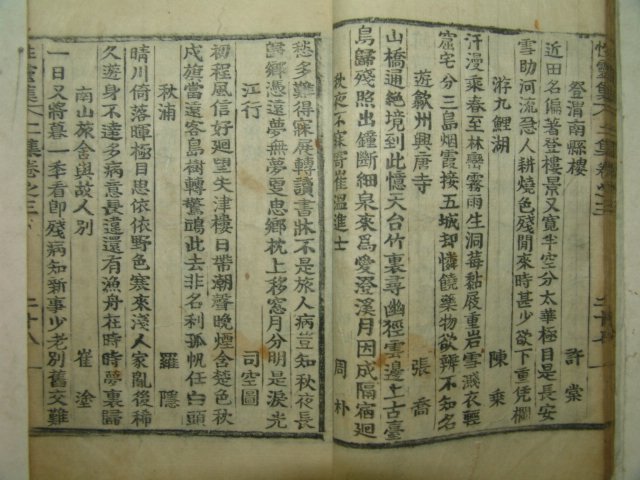 性靈集 二集卷之三
登渭南縣樓 許棠
近田名偏著登樓景又寛半空分太華極目是長安
雪助河流急人耕燒色殘閒來時甚少欲下重凭欄
游九鯉湖 陳乘
汗漫乘春至林巒霧雨生洞莓黏屐重岩雪濺衣輕
窟宅分三島烟霞接五城却憐饒藥物欲辨不知名
遊歙州興唐寺 張喬
山橋通絶境到此憶天台竹裏尋幽徑雲邊上古臺
鳥歸殘照出鐘斷細泉來爲愛澄溪月因成隔宿廻
秋夜不寐寄崔溫進士 周朴
愁多難得寐展轉讀書牀不是旅人病豈知秋夜長
歸鄉憑遠夢無夢更思鄉枕上移窓月分明是淚光
江行 司空圖
初程風信好迴望失津樓日帶潮聲晚煙含楚色秋
戍旗當遠客島樹轉驚鴟此去非名利孤帆任白頭
秋浦 羅隱
晴川倚落暉極目思依依野色寒來淺人家亂後稀
久遊身不達多病意長違還有漁舟在時時夢裏歸
南山旅舍與故人別 崔塗
一日又將暮一季看卽殘病知新事少老別舊交難
性靈集 二集卷之三
二十八